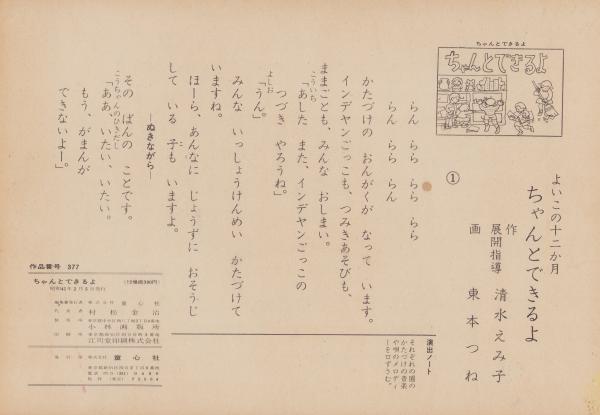 ちゃんとできるよ
ちゃんとできるよ
よいこの十二か月
ちゃんとできるよ
作
展開指導 清水えみ子
画 東本つね
①
らん らら らら らら
らん らら らん
かたづけの おんがくが なって います。
インデヤンごっこも、つみきあそびも、
ままごとも、みんな おしまい。
こういち
「あした また、インデヤンごっこの
つづき やろうね」
よしお
「うん。」
みんな いっしょうけんめい かたづけて
いますね。
ほーら、あんなに じょうずに おそうじ
して いる 子も いますよ。
―ぬきながら―
その ばんの ことです。
こうちゃんのひきだし
「ああ、いたい、いたい。
もう、がまんが
できないよー」。
演出ノート
それぞれの園の
かたづけの音楽
や唄のメロディ
ーを口ずさむ。
作品番号 377
ちゃんとできるよ
株式会社 童心社
村松金治
小林画版所
江司堂印刷株式会社
株式会社 童心社